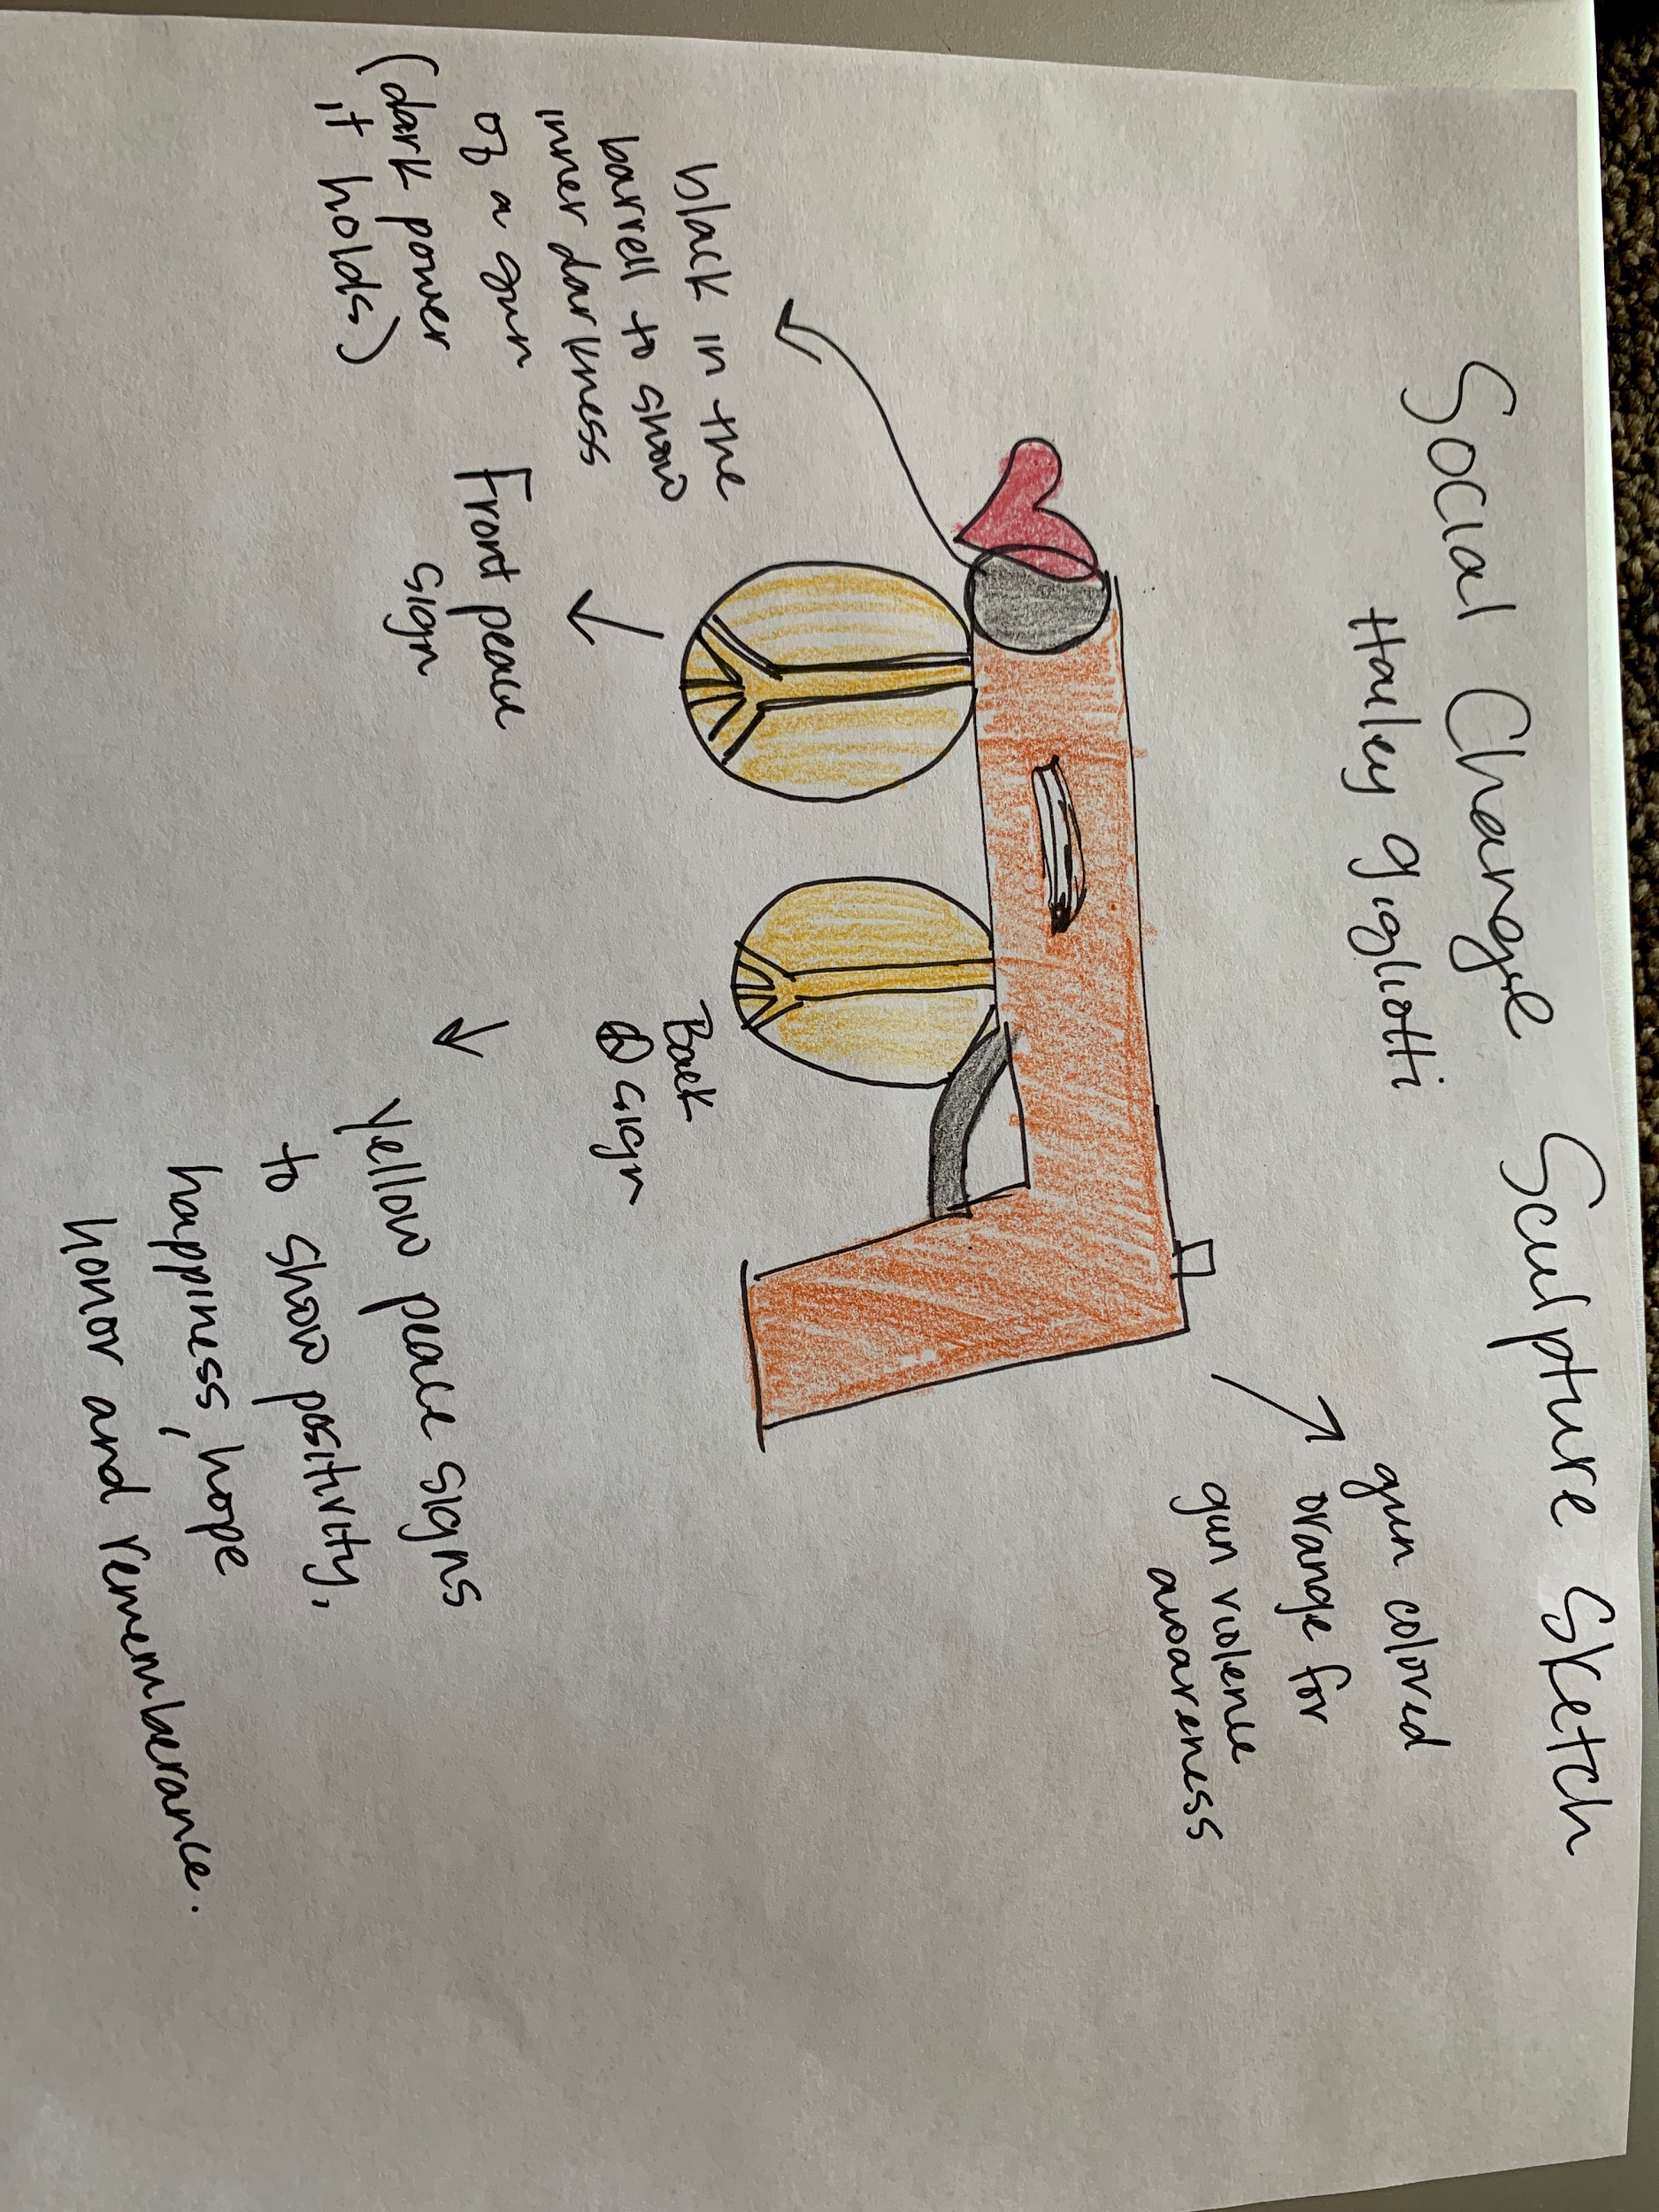 Social Change Sculpture Sketch
Hailey gigliotti
gun colored
orange for
gun violence
awareness
black in the
barrell to show
inner darkness
of a gun
(dark power
it holds)
Front peace
sign
Back
sign
Yellow peace signs
to show positivity,
happiness, hope
honor and rememberance.